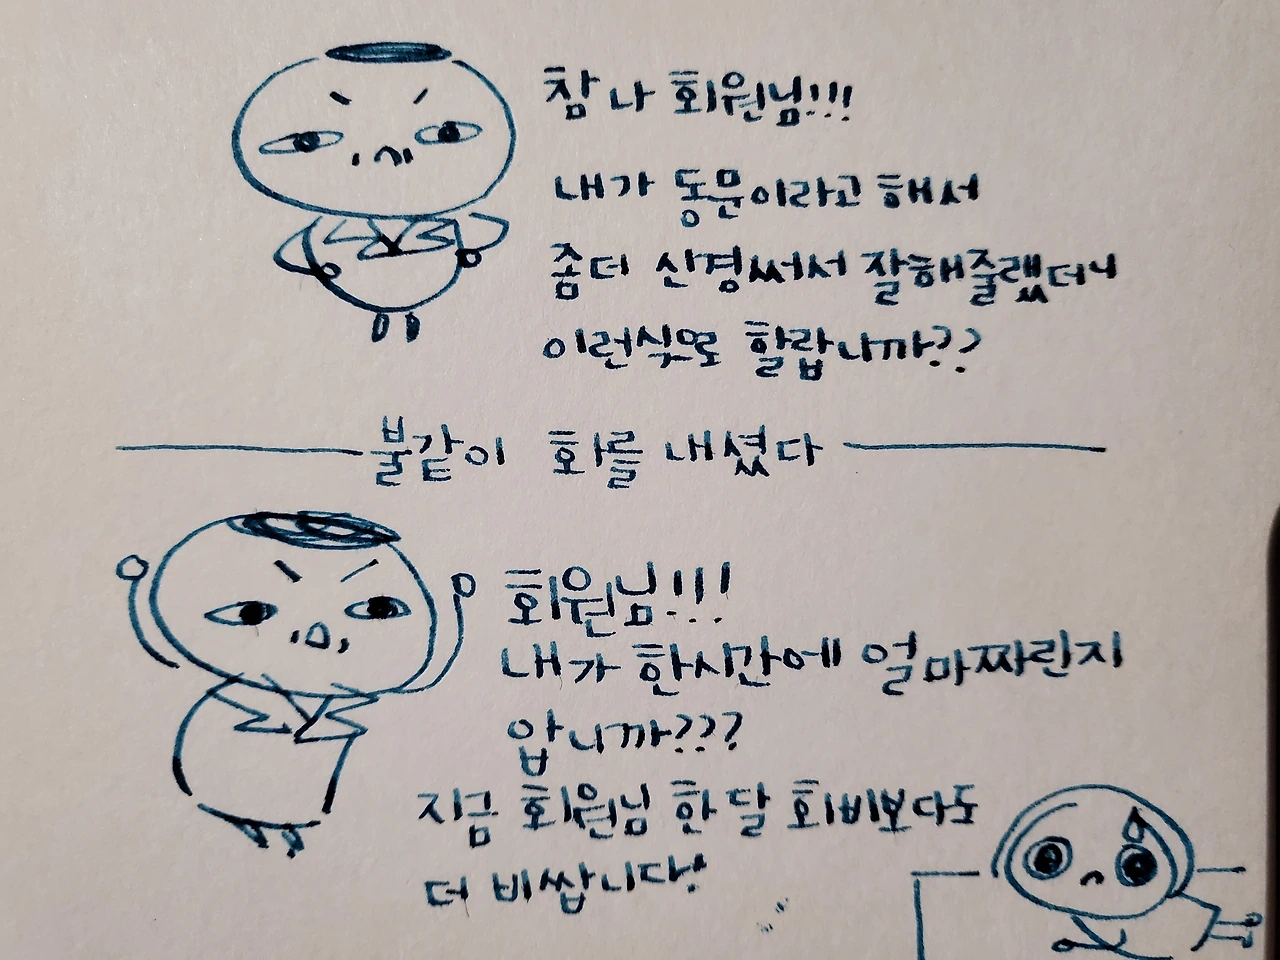 참나 회원님!!!
내가 동문이라고 해서
좀더 신경써서 잘해줄랬더니
이런식으로 할랍니까??
불같이 화를 내셨다
회원님!!!
내가 한시간에 얼마짜린지
압니까???
지금 회원님 한달 회비보다도
더 비쌉니다!